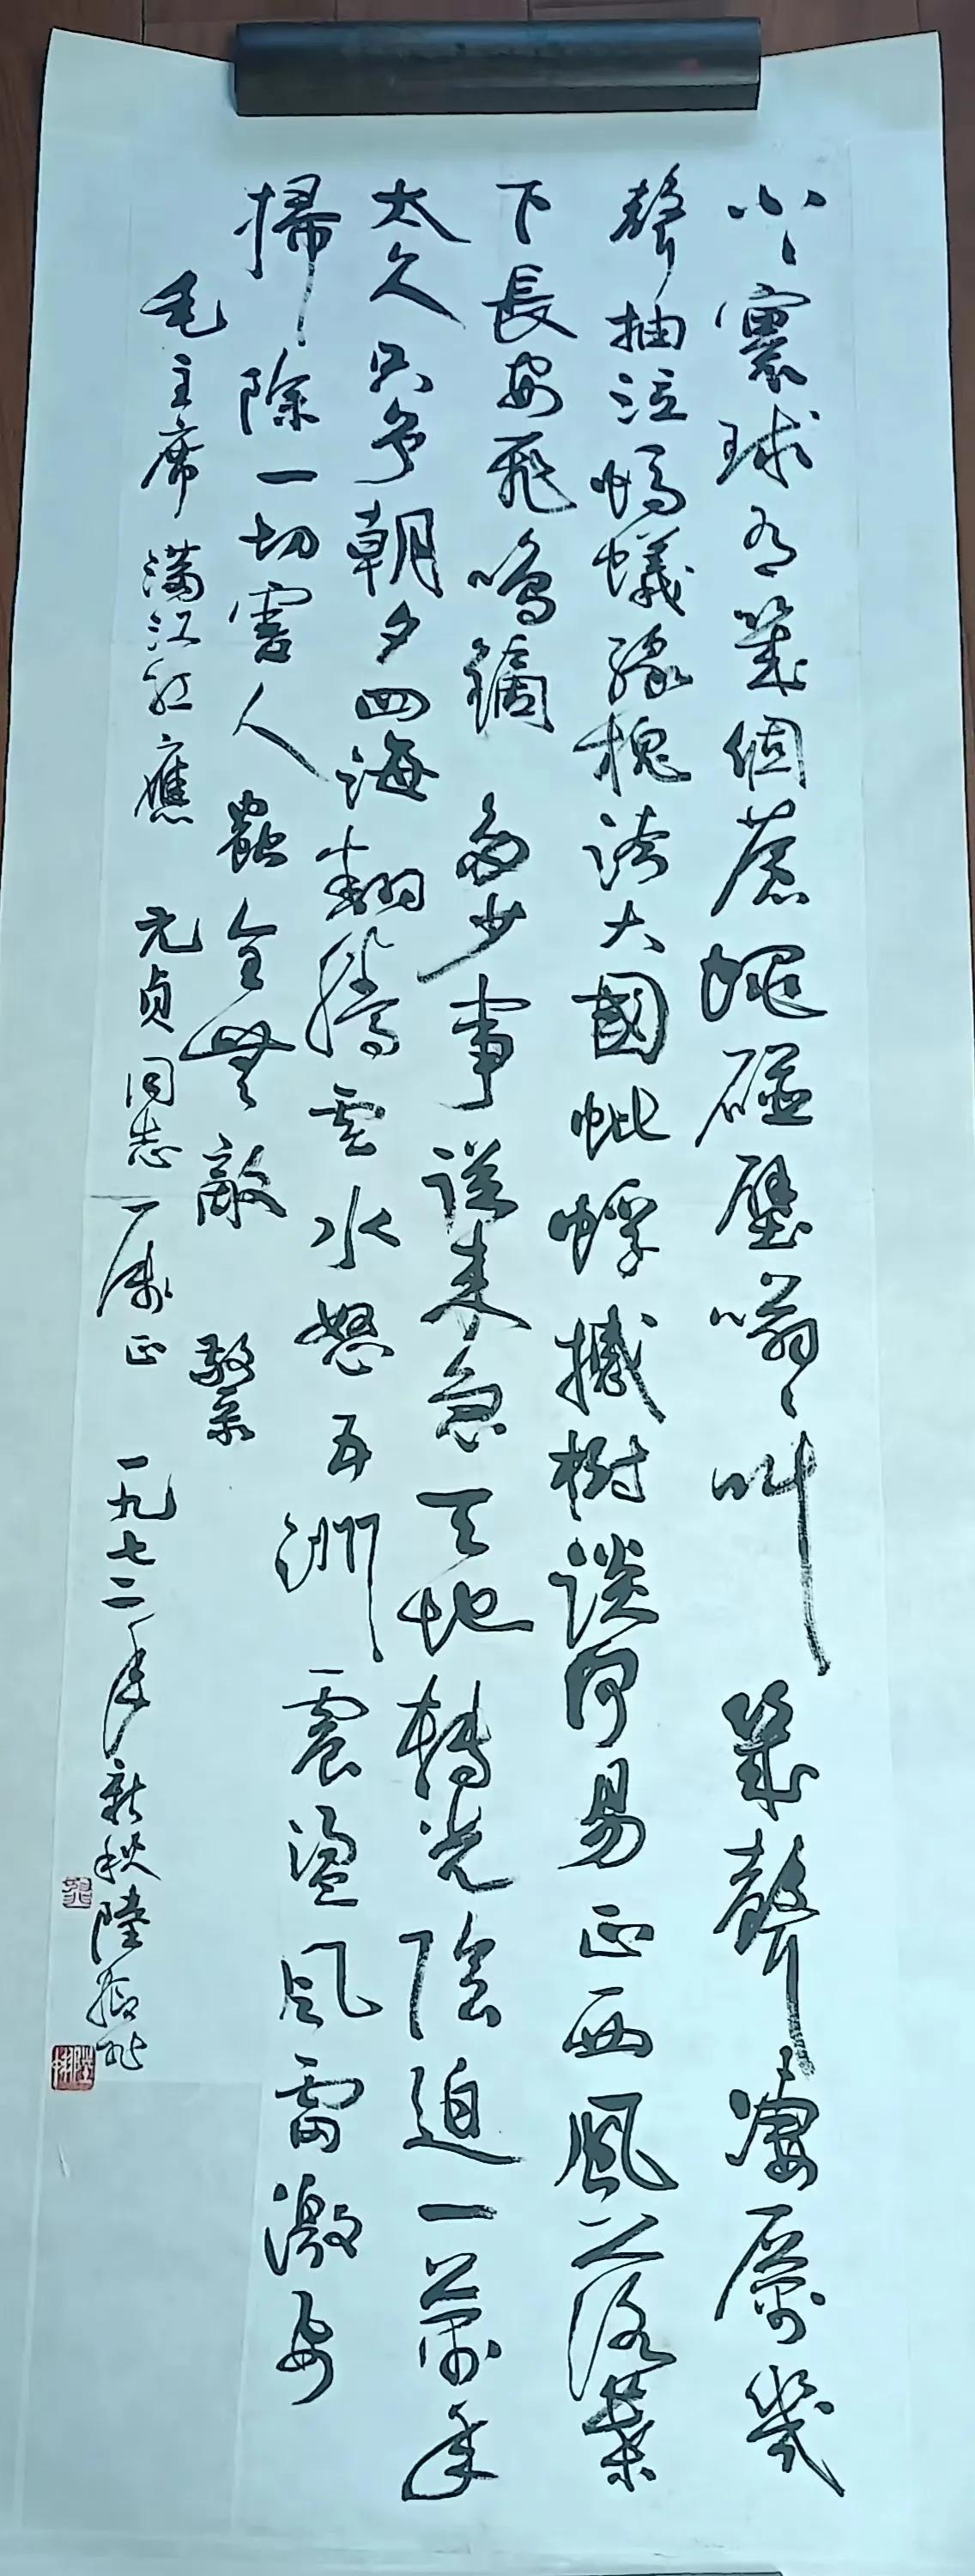 小小寰球有幾個蒼蠅碰壁嗡嗡叫幾聲凄厲幾
聲抽泣螞蟻緣槐誇大國蚍蜉撼樹談何易正西風落葉
下長安飛鳴鏑多少事從來急天地轉光陰迫一萬年
太久只争朝夕四海翻騰雲水怒五洲震盪風雷激要
掃除一切害人蟲全無敵敬录
毛主席滿江紅應元貞同志属正一九七二年新秋陸